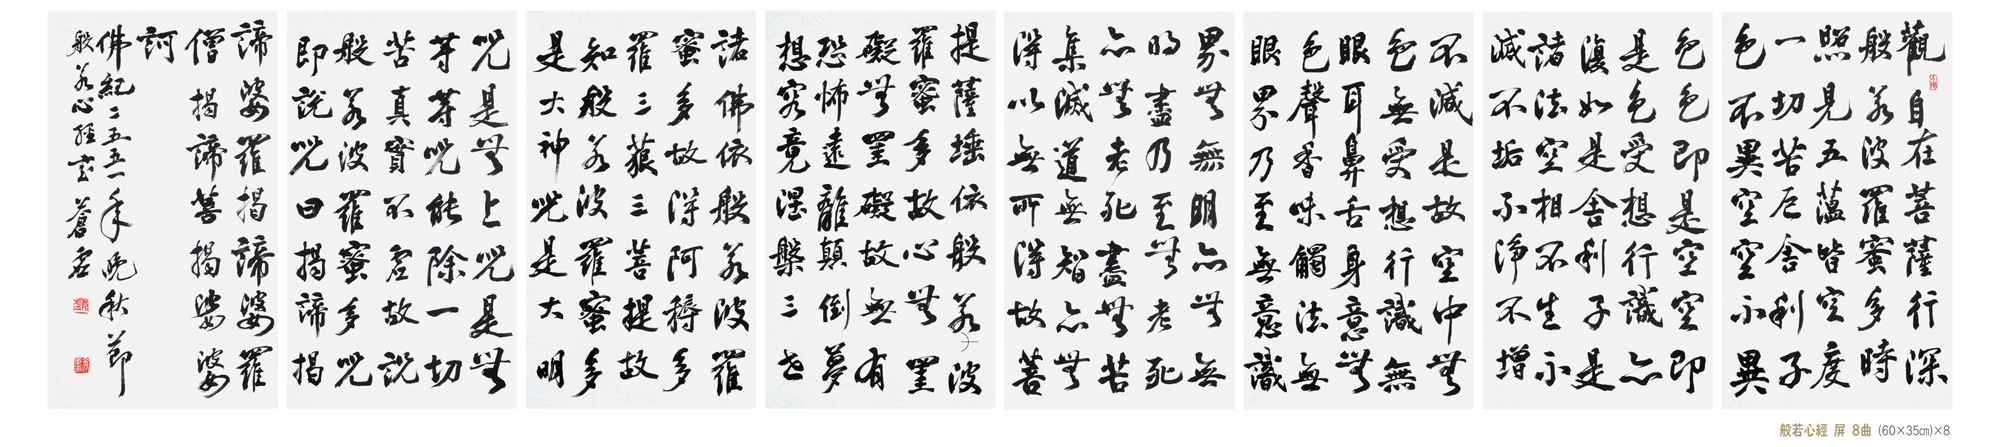 觀自在菩薩行深
般若波羅蜜多時
照見五蘊皆空度
一切苦厄舍利子
色不異空空不異
色色即是空空即
是色受想行識亦
復如是舍利子是
諸法空相不生不
滅不垢不淨不增
不減是故空中無
色無受想行識無
眼耳鼻舌身意無
色聲香味觸法無
眼界乃至無意識
界無無明亦無無
明盡乃至無老死
亦無老死盡無苦
集滅道無智亦無
得以無所得故菩
提薩埵依般若波
羅蜜多故心無罣
礙無罣礙故無有
恐怖遠離顛倒夢
想究竟涅槃三世
諸佛依般若波羅
蜜多故得阿耨多
羅三藐三菩提故
知般若波羅蜜多
是大神呪是大明
呪是無上呪是無
等等呪能除一切
苦真實不虛故說
般若波羅蜜多呪
即說呪曰揭諦揭
諦婆羅揭諦婆羅
僧揭諦菩提娑婆
訶
佛紀二五五一年晚秋節
般若心經 蒼
般若心經 屛 8曲 (60×35㎝)×8